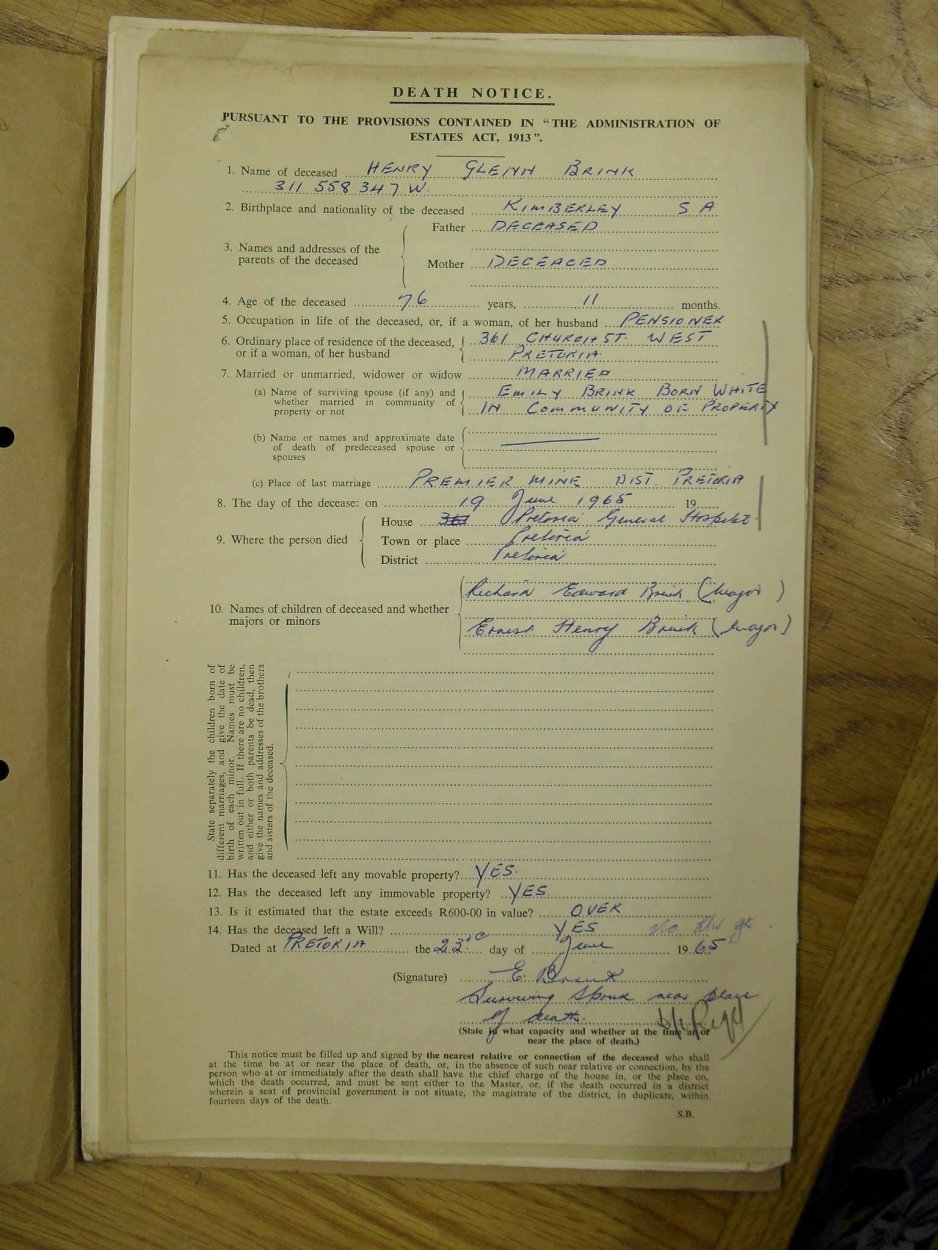 DEATH NOTICE.
PURSUANT TO THE PROVISIONS CONTAINED IN "THE ADMINISTRATION OF
ESTATES ACT, 1913".
1. Name of deceased HENRY GLENN BRINK
311 558 347 W.
2. Birthplace and nationality of the deceased KIMBERLEY S A
Father DECEASED
3. Names and addresses of the
parents of the deceased
Mother DECEACED
4. Age of the deceased 76 years, 11 months.
5. Occupation in life of the deceased, or, if a woman, of her husband PENSIONER
6. Ordinary place of residence of the deceased, 361 CHURCH ST. WEST
or if a woman, of her husband PRETORIA
7. Married or unmarried, widower or widow MARRIED
(a) Name of surviving spouse (if any) and EMILY BRINK BORN WHITE
whether married in community of IN COMMUNITY OF PROPERTY
property or not
(b) Name or names and approximate date
of death of predeceased spouse or
spouses
(c) Place of last marriage PREMIER MINE DIST PRETORIA
8. The day of the decease: on 19 June 1965 19
House Pretoria General Hospital
9. Where the person died Town or place Pretoria
District Pretoria
Richard Edward Brink (Major)
10. Names of children of deceased and whether
majors or minors Ernest Henry Brink (Major)
State separately the children born of
different marriages, and give the date of
birth of each minor. Names must be
written out in full. If there are no children,
and either or both parents be dead, then
give the names and addresses of the brothers
and sisters of the deceased.
11. Has the deceased left any movable property? YES.
12. Has the deceased left any immovable property? YES
13. Is it estimated that the estate exceeds R600-00 in value? OVER
14. Has the deceased left a Will? YES
Dated at PRETORIA the 23rd day of June 1965
(Signature) E. Brink
Surviving Spouse near place
of death.
(State in what capacity and whether at the time at or
near the place of death.)
This notice must be filled up and signed by the nearest relative or connection of the deceased who shall
at the time be at or near the place of death, or, in the absence of such near relative or connection, by the
person who at or immediately after the death shall have the chief charge of the house in, or the place on,
which the death occurred, and must be sent either to the Master, or, if the death occurred in a district
wherein a seat of provincial government is not situate, the magistrate of the district, in duplicate, within
fourteen days of the death.
S.B.